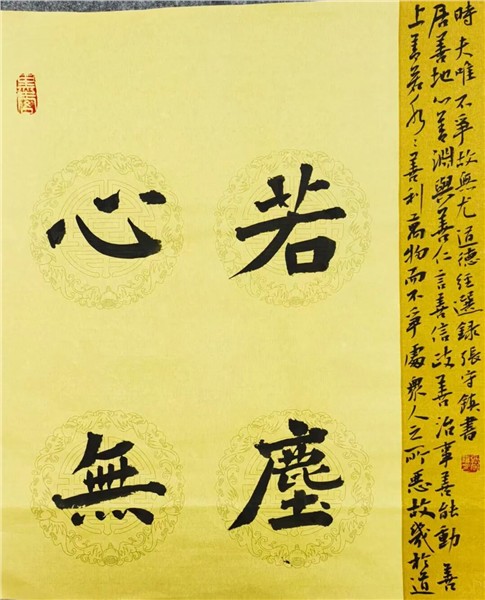 心若
無塵
上善若水〻善利萬物而不爭處衆人之所惡故幾於道
居善地心善淵與善仁言善信政善治事善能動善
時夫唯不爭故無尤道德經選錄張守鎮書